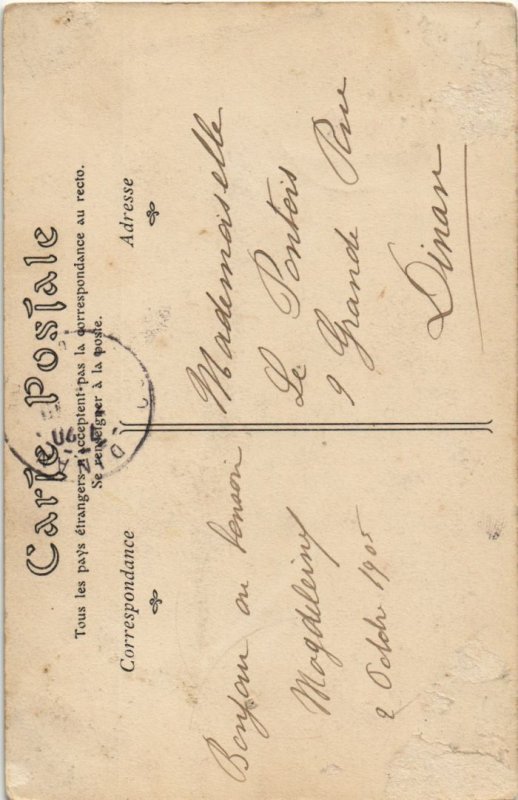 Carte Postale
Tous les pays étrangers n'acceptent pas la correspondance au recto.
Se renseigner à la poste.
Correspondance
Adresse
Bonjour
Magdeleine
2 Octobre 1905
Mademoiselle
Le Pontois
9 Grande Rue
Dinan